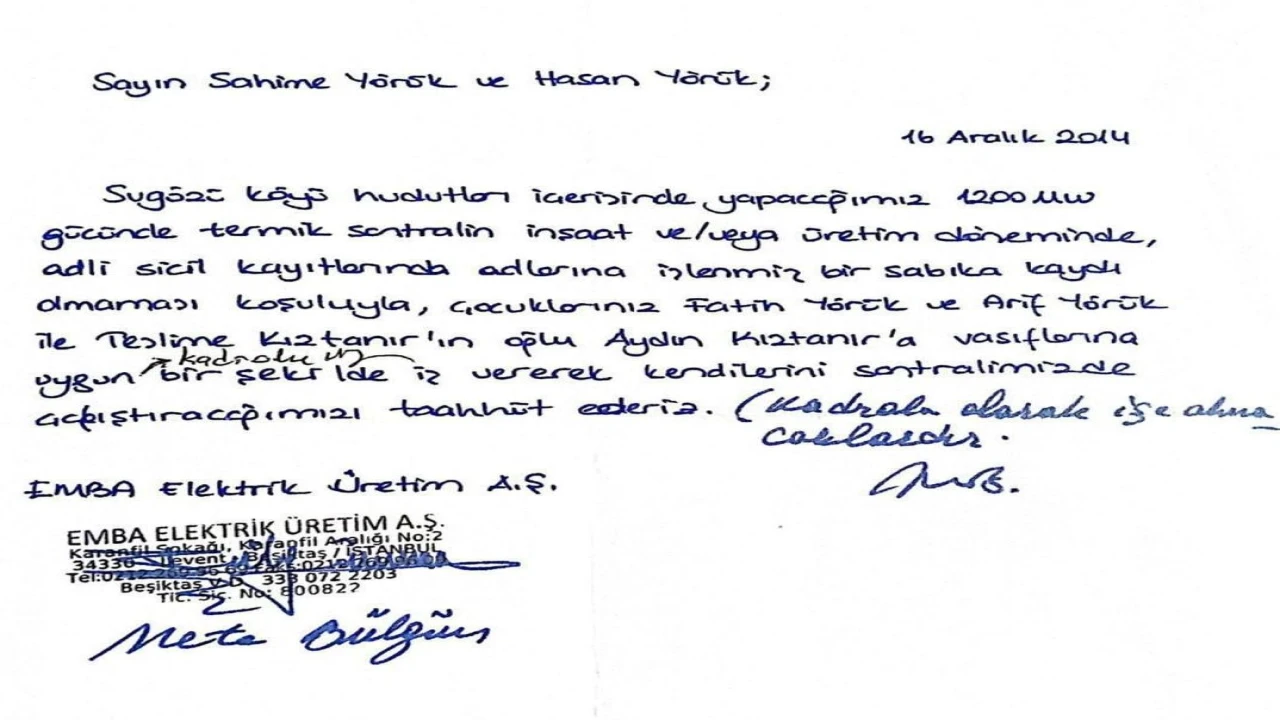 Sayın Sahime Yörük ve Hasan Yörük;
16 Aralık 2014
Sugözü köyü hudutları içerisinde yapacağımız 1200 MW
gücünde termik santralin inşaat ve/veya üretim döneminde,
adli sicil kayıtlarında adlarına işlenmiş bir sabıka kaydı
olmaması koşuluyla, çocuklarınız Fatih Yörük ve Arif Yörük
ile Teslime Kıztanır'ın oğlu Aydın Kıztanır'a vasıflarına
kadrolu
uygun bir şekilde iş vererek kendilerini santralimizde
çalıştıracağımızı taahhüt ederiz. (Kadrolu olarak işe alına
caklardır.
M.B.
EMBA Elektrik Üretim A.Ş.
EMBA ELEKTRİK ÜRETİM A.Ş.
Karanfil Sokağı, Karanfil Aralığı No:2
34330 Levent / Beşiktaş / İSTANBUL
Tel:0212 269 Faks:0212 269
Beşiktaş V.D. 333 072 2203
Tic. Sic. No: 800822
Mete Bülgün